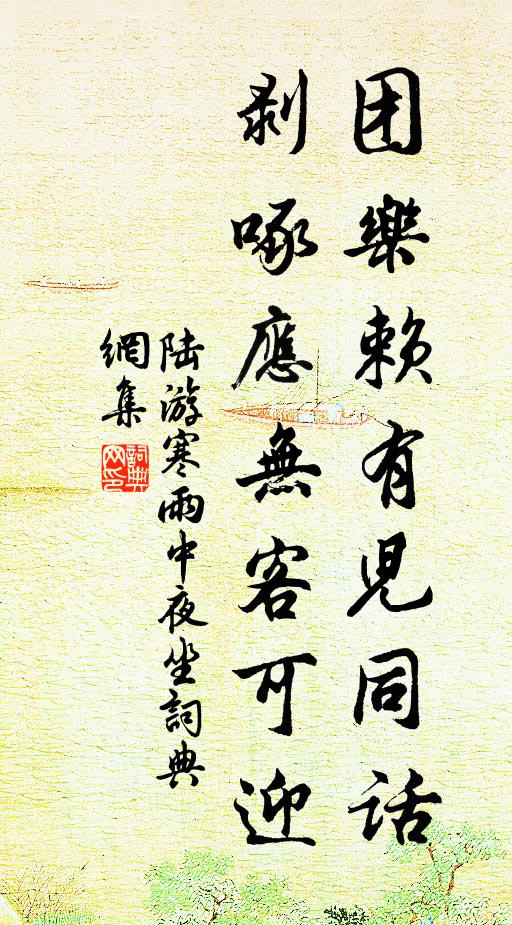 团樂賴有兒同話
剥啄應無客可迎
陆游寒雨中夜坐詞典
網集
詞典
网印